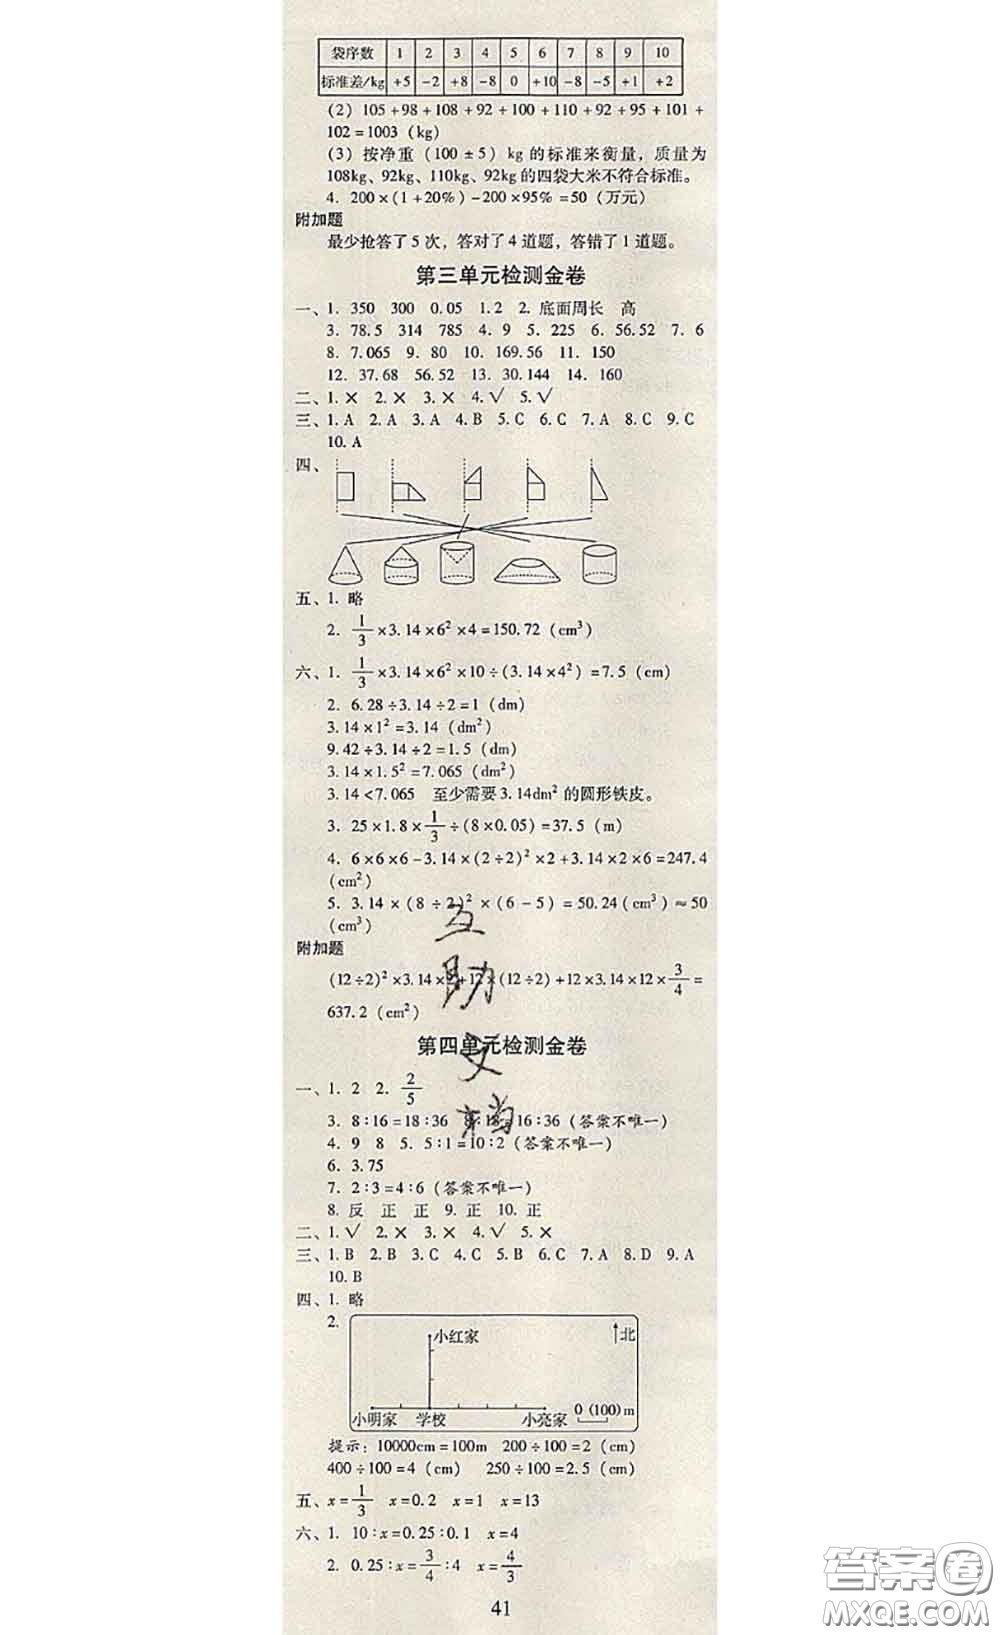 袋序数 1 2 3 4 5 6 7 8 9 10
标准差/kg +5 -2 +8 -8 0 +10 -8 -5 +1 +2
(2) 105+98+108+92+100+110+92+95+101+
102=1003 (kg)
(3) 按净重 (100±5) kg 的标准来衡量，质量为
108kg、92kg、110kg、92kg的四袋大米不符合标准。
4. 200×(1+20%)-200×95%=50 (万元)
附加题
最少抢答了5次，答对了4道题，答错了1道题。
第三单元检测金卷
一、1. 350 300 0.05 1.2 2. 底面周长 高
3. 78.5 314 785 4. 9 5. 225 6. 56.52 7. 6
8. 7.065 9. 80 10. 169.56 11. 150
12. 37.68 56.52 13. 30.144 14. 160
二、1. × 2. × 3. × 4. √ 5. √
三、1. A 2. A 3. A 4. B 5. C 6. C 7. A 8. C 9. C
10. A
四、
五、1. 略
2. 1/3×3.14×6²×4=150.72 (cm³)
六、1. 1/3×3.14×6²×10÷(3.14×4²)=7.5 (cm)
2. 6.28÷3.14÷2=1 (dm)
3.14×1²=3.14 (dm²)
9.42÷3.14÷2=1.5 (dm)
3.14×1.5²=7.065 (dm²)
3.14<7.065 至少需要3.14dm²的圆形铁皮。
3. 25×1.8×1/3÷(8×0.05)=37.5 (m)
4. 6×6×6-3.14×(2÷2)²×2+3.14×2×6=247.4
(cm²)
5. 3.14×(8÷2)²×(6-5)=50.24(cm³)≈50
(cm³)
附加题
(12÷2)²×3.14× +12×(12÷2)+12×3.14×12×3/4=
637.2 (cm²)
互助文档
第四单元检测金卷
一、1. 2 2. 2/5
3. 8∶16=18∶36 16∶36 (答案不唯一)
4. 9 8 5. 5∶1=10∶2 (答案不唯一)
6. 3.75
7. 2∶3=4∶6 (答案不唯一)
8. 反 正 正 9. 正 10. 正
二、1. √ 2. × 3. × 4. √ 5. ×
三、1. B 2. B 3. C 4. C 5. B 6. C 7. A 8. D 9. A
10. B
四、1. 略
2.
小红家
北
小明家 学校 小亮家 0 (100) m
提示：10000cm=100m 200÷100=2 (cm)
400÷100=4 (cm) 250÷100=2.5 (cm)
五、x=1/3 x=0.2 x=1 x=13
六、1. 10∶x=0.25∶0.1 x=4
2. 0.25∶x=3/4∶4 x=4/3
41
答案卷
MXQE.COM